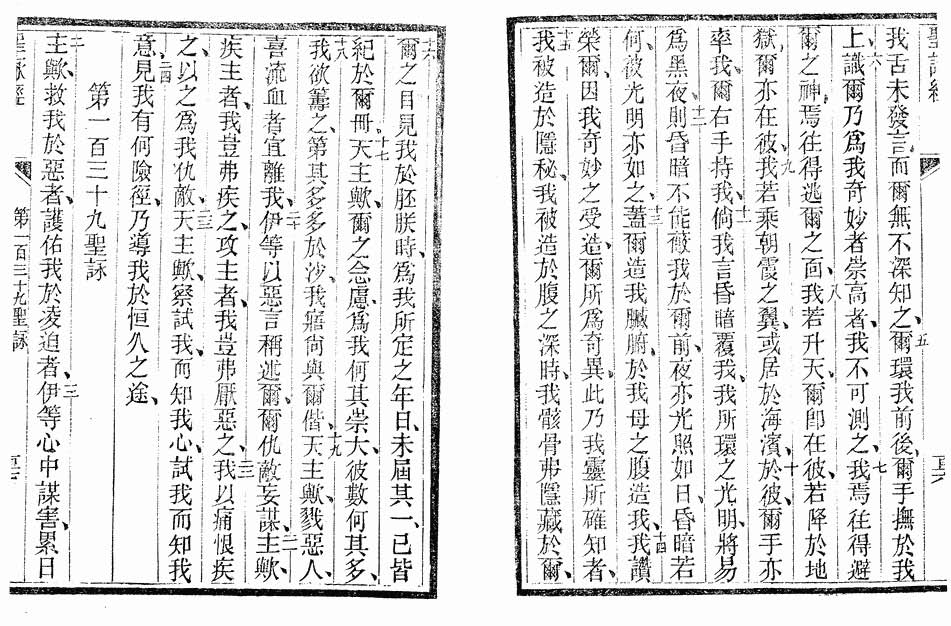 聖詠經
我舌未發言而爾無不深知之、五爾環我前後、爾手撫於我
上、六識爾乃爲我奇妙者、崇高者、我不可測之、七我焉往得避
爾之神、焉往得逃爾之面、八我若升天、爾卽在彼、若降於地
獄、爾亦在彼、九我若乘朝霞之翼、或居於海濱、十於彼、爾手亦
率我、爾右手持我、十一倘我言昏暗覆我、我所環之光明、將易
爲黑夜、十二則昏暗不能蔽我於爾前、夜亦光照如日、昏暗若
何、被光明亦如之、十三蓋爾造我臟腑、於我母之腹造我、十四讚
榮爾、因我奇妙之受造、爾所爲奇異、此乃我靈所確知者、
十五我被造於隱秘、我被造於腹之深時、我骸骨弗隱藏於爾、
十六爾之目見我於胚朕時、爲我所定之年日、未屆其一、已皆
紀於爾冊、十七天主歟、爾之念慮、爲我何其崇大、彼數何其多、
十八我欲籌之、第其多多於沙、我寤尙與爾偕、十九天主歟、戮惡人、
喜流血者宜離我、二十伊等以惡言稱述爾、爾仇敵妄謀、二一主歟、
疾主者、我豈弗疾之、攻主者、我豈弗厭惡之、二二我以痛恨疾
之、以之爲我仇敵、二三天主歟、察試我、而知我心、試我而知我
意、二四見我有何險徑、乃導我於恒久之途、
第一百三十九聖詠
二主歟、救我於惡者、護佑我於凌迫者、三伊等心中謀害、累日
聖詠經
第一百三十九聖詠